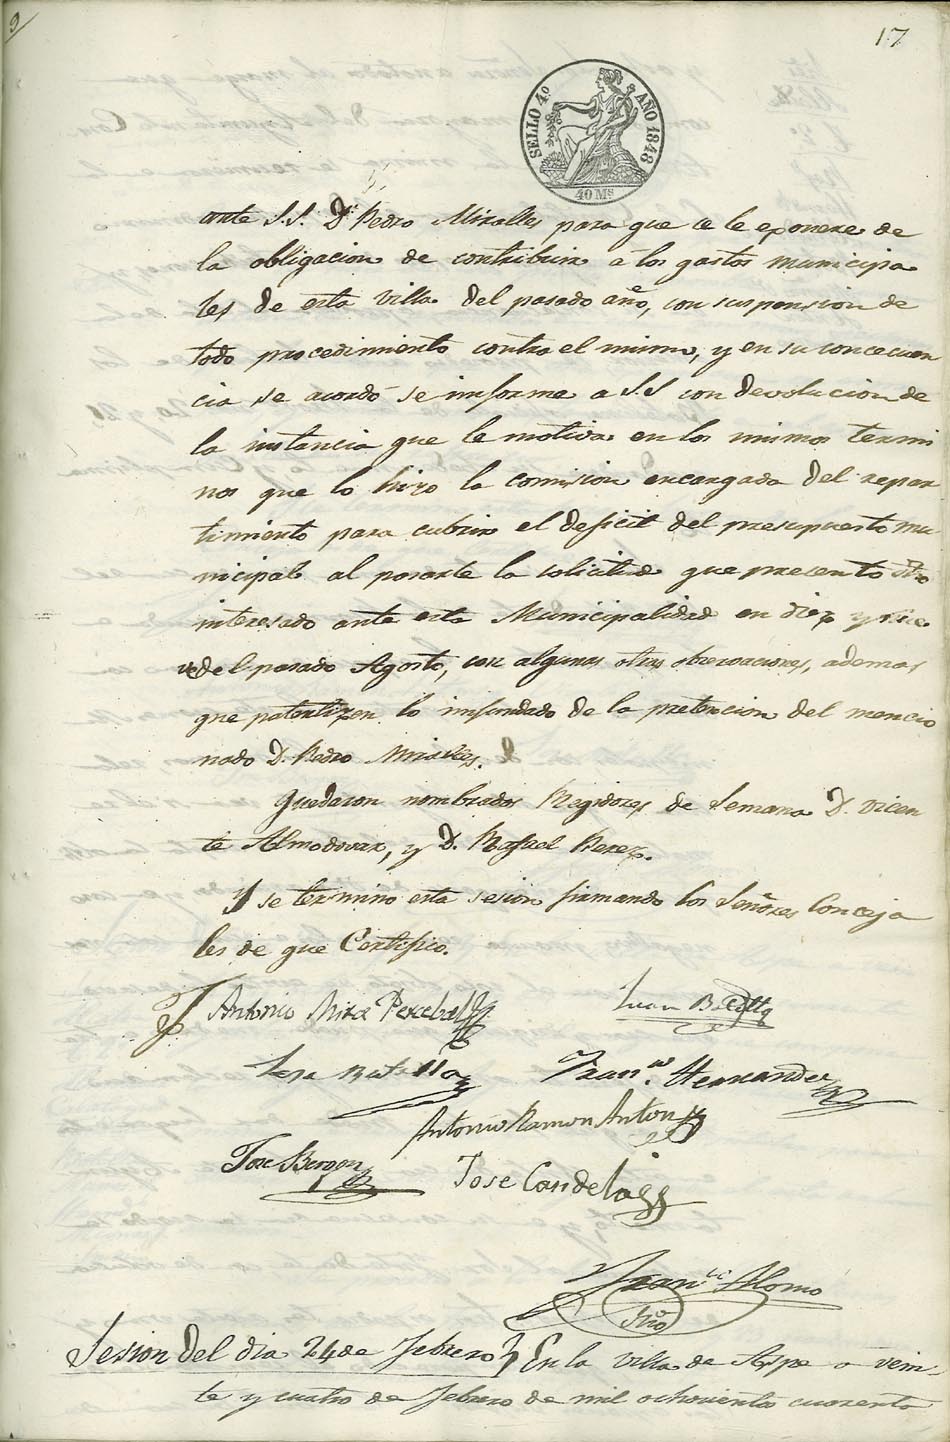 9
17
SELLO 4º AÑO 1848
40 Ms
ante S.S. Dn Pedro Miralles para que se le exonere de
la obligacion de contribuir á los gastos municipa
les de esta villa del pasado año, con suspension de
todo procedimiento contra el mismo, y en su concecuen
cia se acordó se informe a S.S con devolucion de
la instancia que le motiva en los mismos termi
nos que lo hizo la comision encargada del repar
timiento para cubrir el deficit del presupuesto mu
nicipal al pasarle la solicitud que presentó dho
interesado ante esta Municipalidad en diez y nue
ve del pasado Agosto, con algunas otras observaciones, ademas
que patentizen lo infundado de la pretencion del mencio
nado D. Pedro Miralles.
Quedaron nombrados Regidores de Semana D. Vicen
te Almodovar, y D. Rafael Perez.
Y se terminó esta sesion firmando los Señores Conceja
les de que Certifico.
Antonio Mira Percebal
Juan
Franco Hernandez
Antonio Ramon Anton
Jose Jose Candela
Franco Alonso
Srio
Sesion del dia 24 de Febrero En la villa de Aspe a vein-
te y cuatro de Febrero de mil ochocientos cuarenta